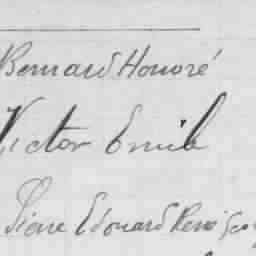 Bernard Honoré
Victor Emile
Pierre Edouard René